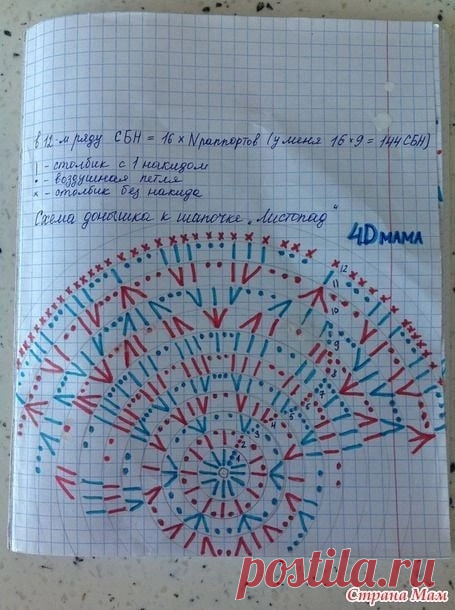 в 12-м ряду СБН = 16 × N раппортов (у меня 16×9 = 144 СБН)
| - столбик с 1 накидом
• - воздушная петля
× - столбик без накида
Схема донышка к шапочке "Листопад"
4D мама
12
11
10
9
8
7
6
5
4
3
2
1
postila.ru
Страна Мам